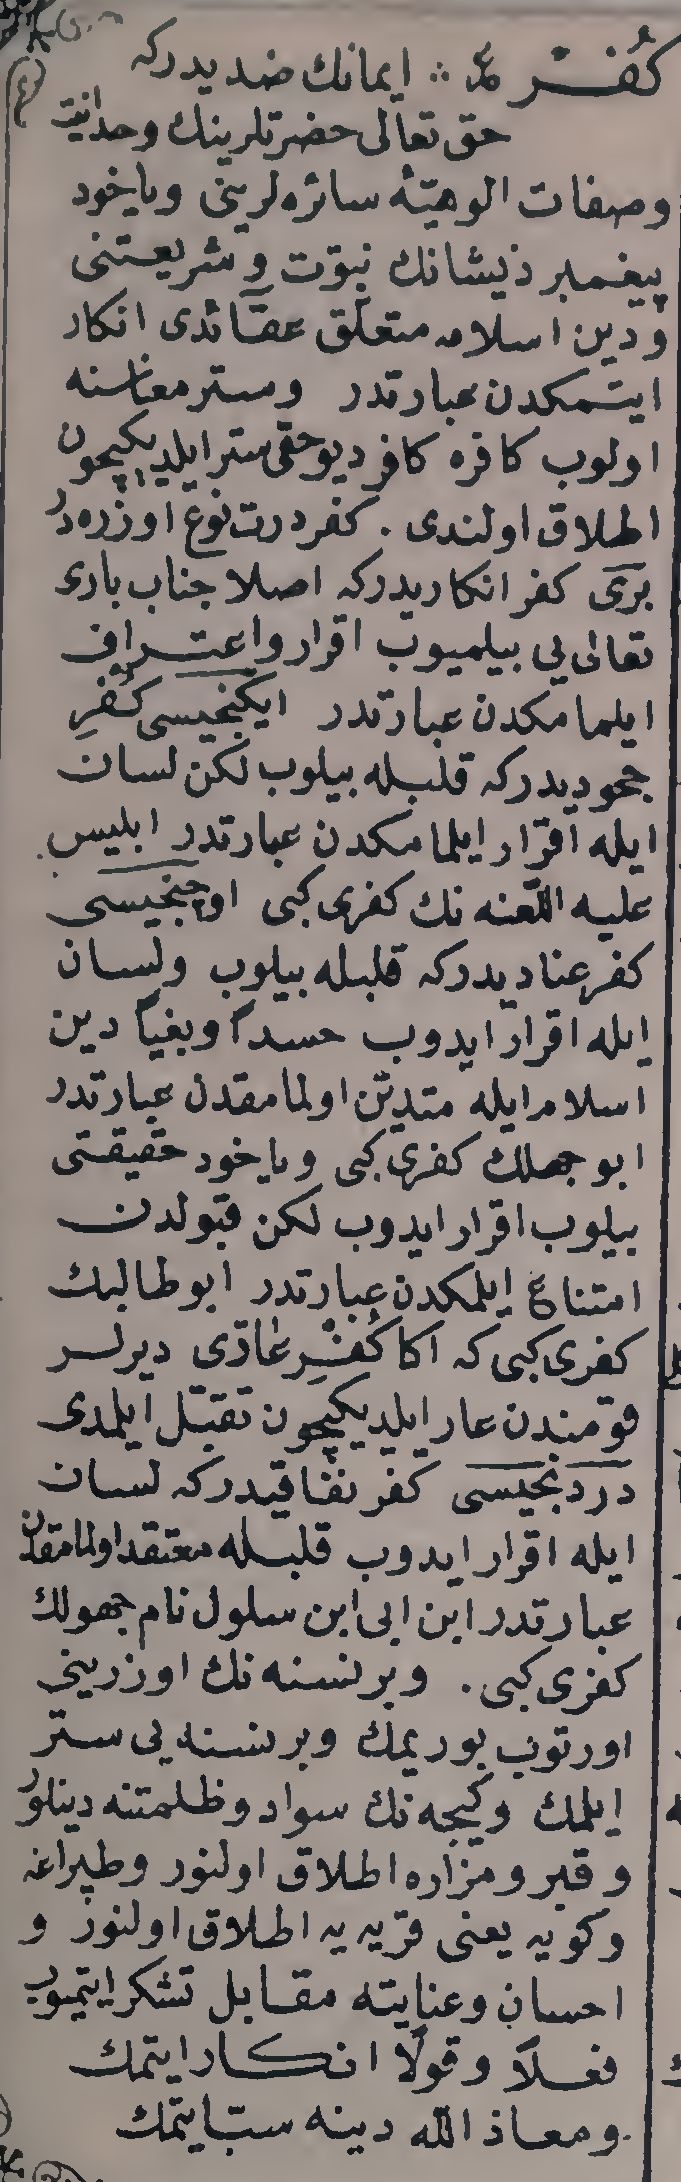 كُفْر ع ∴ ايمانك ضديدركه
حق تعالى حضرتلرينك وحدانيت
وصفات الوهيّهٔ سائره لرينى وياخود
پيغمبر ذيشانك نبوّت و شريعتنى
و دين اسلامه متعلّق عقائدى انكار
ايتمكدن عبارتدر وستر معناسنه
اولوب كافره كافر ديو حقى ستر ايلديكيچون
اطلاق اولندى . كفر درت نوع اوزره در
برى كفر انكاريدركه اصلا جناب بارئ
تعالى يى بيلميوب اقرار و اعتراف
ايلمامكدن عبارتدر ايكنجيسى كُفرِ
جحوديدركه قلبله بيلوب لكن لسان
ايله اقرار ايلمامكدن عبارتدر ابليس
عليه اللّعنه نك كفرى كبى اوچنجيسى
كفر عناديدركه قلبله بيلوب ولسان
ايله اقرار ايدوب حسداً و بغياً دين
اسلام ايله متديّن اولمامقدن عبارتدر
ابو جهلك كفرى كبى وياخود حقيقتى
بيلوب اقرار ايدوب لكن قبولدن
امتناع ايلمكدن عبارتدر ابو طالبك
كفرى كبى كه اكا كُفْرِ عارى ديرلر
قومندن عار ايلديكيچون تقبّل ايلمدى
دردنجيسى كفر نفاقيدركه لسان
ايله اقرار ايدوب قلبله معتقد اولمامقدن
عبارتدر ابن ابى ابن سلول نام جهولك
كفرى كبى . وبر نسنه نك اوزرينى
اورتوب بوريمك وبر نسنه يى ستر
ايلمك وكيجه نك سواد وظلمتنه دينلور
و قبر و مزاره اطلاق اولنور وطپراغه
وكويه يعنى قريه يه اطلاق اولنور و
احسان وعنايته مقابل تشكر ايتميوب
فعلاً وقولاً انكار ايتمك
ومعاذ الله دينه سبّ ايتمك